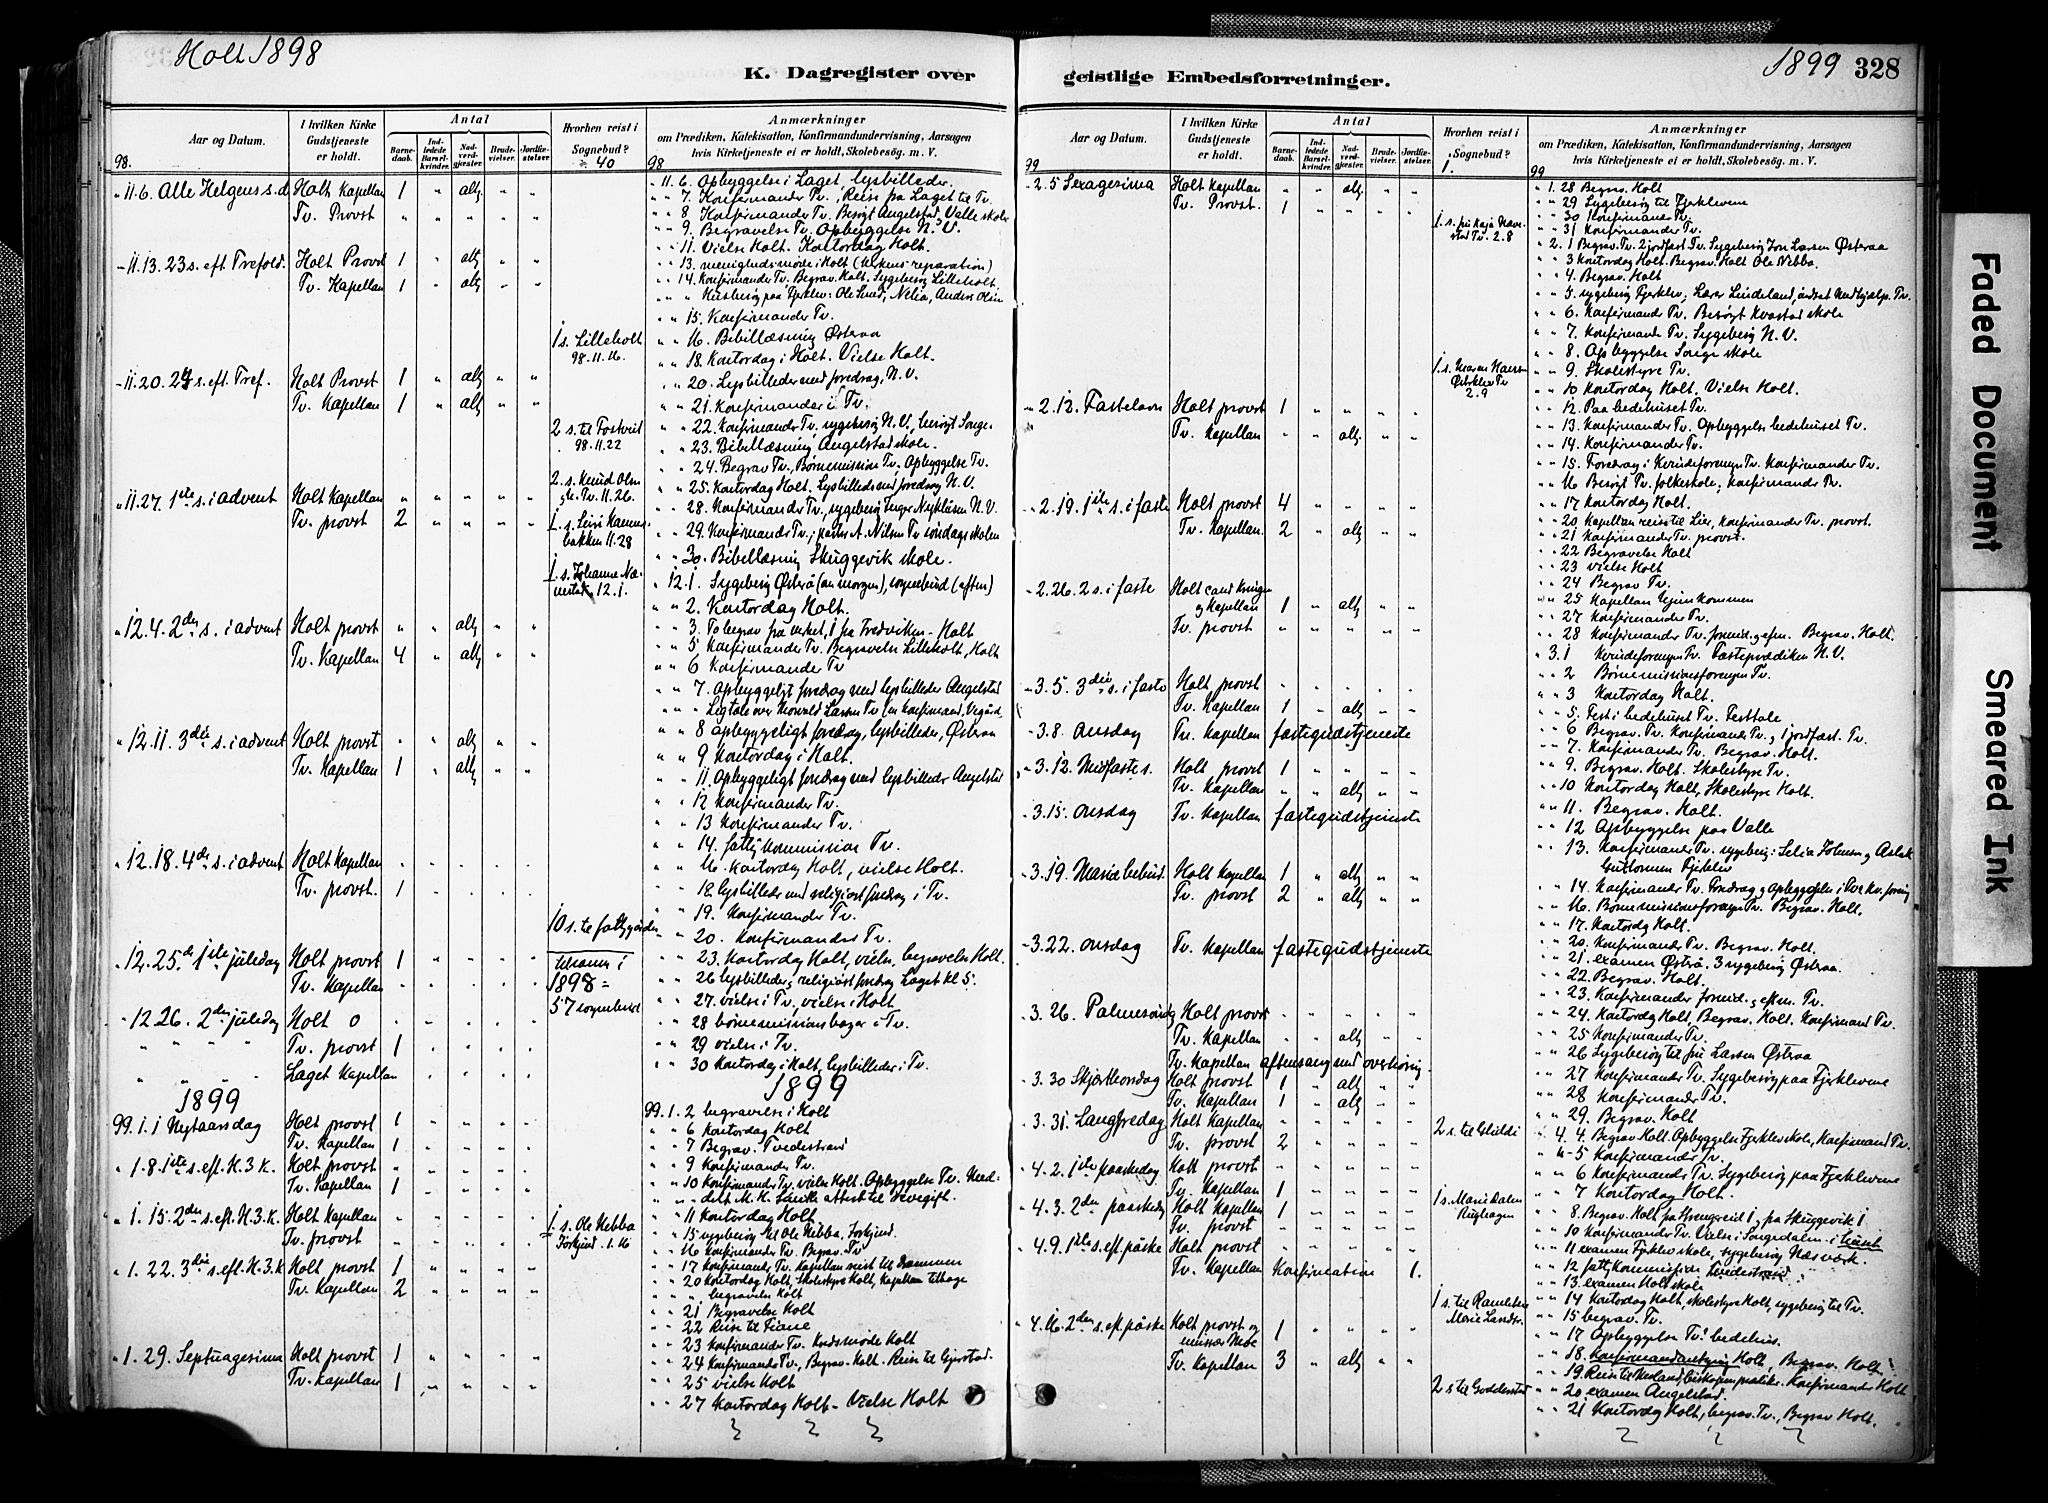 Holt 1898
K. Dagregister over
Aar og Datum.
I hvilken Kirke Gudstjeneste er holdt.
Antal
Barnedaab.
Indledede Barselkvinder.
Nadverdgjester.
Brudevielser.
Jordfæstelser.
Hvorhen reist i Sognebud?
Anmærkninger
om Prædiken, Katekisation, Konfirmandundervisning, Aarsagen
hvis Kirketjeneste ei er holdt, Skolebesög. m. V.
98.
40
98
" 11.6. Alle Helgens s.d Holt Kapellan 1 " altg " "
Tv. Provst " " " " "
- 11.13. 23 s. eft Trefold. Holt Provst 1 " altg " "
Tv. Kapellan 1 " altg " "
- 11.20. 24 s. eft Tref. Holt Provst 1 " altg " "
Tv. Kapellan 1 " altg " "
" 11.27. 1ste s. i advent Holt Kapellan " " " " "
Tv. provst 2 " " " "
" 12.4. 2den s. i advent Holt provst " " altg " "
Tv. Kapellan 4 " altg " "
" 12.11. 3die s. i advent Holt provst " " altg " "
Tv. Kapellan 1 " altg " "
" 12.18. 4de s. i advent Holt Kapellan
Tv. provst. 1
" 12.25. 1ste juledag Holt provst 1
Tv. Kapellan
- 12.26. 2den juledag Holt 0
" " " " Tv. provst 1
" " " " Laget Kapellan
1899
99.1.1 Nytaarsdag Holt provst 1
Tv. Kapellan 1
" 1.8. 1ste s. eft. H.3.K. Holt provst
Tv. Kapellan 1
" 1.15. 2den s. eft. H.3.K. Holt Kapellan
Tv. provst
" 1.22. 3die s. eft. H.3.K Holt provst 1
Tv. Kapellan 2
" 1.29. Septuagesima Holt provst 1
Tv. Kapellan 1
1 s. Lilleholt
98.11.16.
2 s. til Fostveit
98.11.22
2. s. Knud Olsen
Tv. 11.26.
1. s.
bakken 11.28
1. s. Johanne Næ-
12.1.
10 s. til fattiggården
1898 =
57 sognebud
1. s. Ole Nebba
1.16
" 11.6. Opbyggelse i Laget lysbilleder.
" " 7. Konfirmander Tv., Reise fra Laget til Tv.
" " 8. Konfirmander Tv. Besögt Angelstad, Valle skole
" " 9. Begravelse Tv. Opbyggelse N. V.
" " 11. Vielse Holt. Kontordag Holt.
" " 13. menighedsmöde i Holt (kirkens reparation)
" " 14. Konfirmander Tv. Begrav. Holt, Sygebesög Lilleholt.
" " Husbesög paa Fjerklev:
" " 15. Konfirmander Tv.
" " 16. Bibellæsning Østeraa
" " 18. Kontordag i Holt. Vielse Holt.
" " 20. Lysbilleder med foredrag, N. V.
" " 21. Konfirmander i Tv.
" " 22. Konfirmander Tv. sygebesög N. V., besögt Songe.
" " 23. Bibellæsning Angelstad skole.
" " 24. Begrav Tv., Børnemission Tv. Opbyggelse Tv.
" " 25. Kontordag Holt. Lysbilleder med foredrag N. V.
" " 28. Konfirmander Tv., sygebesög N. V.
" " 29. Konfirmander Tv., pastor A. Nilsen Tv söndagsskolen
" " 30. Bibellæsning Skuggevik skole.
" 12.1. Sygebesög Østerå (om morgen), sognebud (aften)
" " 2. Kontordag Holt.
" " 3. To begrav fra verket, 1 fra Fredviken - Holt
" " 5 Konfirmander Tv. Begravelse Lilleholt, Holt
" " 6 Konfirmander Tv
" " 7. Opbyggeligt foredrag med lysbilleder Angelstad
" " Ligtale over
" " 8 opbyggeligt foredrag, lysbilleder, Østeraa
" " 9 Kontordag i Holt.
" " 11. Opbyggeligt foredrag med lysbilleder Angelstad
" " 12 Konfirmander Tv.
" " 13 Konfirmander Tv.
" " 14. fattigkommission Tv.
" " 16. Kontordag Holt, vielse Holt.
" " 18. lysbilleder med religiöst foredrag i Tv.
" " 19. Konfirmander Tv.
" " 20. Konfirmander Tv.
" " 23. Kontordag Holt, vielse, begravelse Holt.
" " 26 lysbilleder, religiöst foredrag Laget kl 5.
" " 27. vielse i Tv, vielse i Holt
" " 28 börnemissionsbazar i Tv.
" " 29 vielse i Tv.
" " 30 Kontordag i Holt, lysbilleder i Tv.
1899
99.1.2 begravelse i Holt
" " 6 Kontordag Holt
" " 7 Begrav. Tvedestrand
" " 9 Konfirmander Tv.
" " 10 Konfirmander Tv. vielse Holt. Opbyggelse Tv. Med-
" " 11 Kontordag Holt
" " 15 sygebesög til Ole Nebba,
" " 16 Konfirmander Tv. Begrav. Tv
" " 17 Konfirmander Tv. Kapellan reist til Drammen
" " 20 Kontordag Holt, Skolestyre Holt, Kapellan tilbage
" " begravelse Holt
" " 21 Begravelse Holt
" " 22 Reise til Fiane
" " 23 Konfirmander Tv. Holt
" " 24 Konfirmander Tv., Begrav. Holt. Reise til Gjerstad.
" " 25 vielse Holt
" " 27 Kontordag Holt - Vielse Holt
geistlige Embedsforretninger.
1899
328
Aar og Datum.
I hvilken Kirke Gudstjeneste er holdt.
Antal
Barnedaab.
Indledede Barselkvinder.
Nadverdgjester.
Brudevielser.
Jordfæstelser.
Hvorhen reist i Sognebud?
Anmærkninger
om Prædiken, Katekisation, Konfirmandundervisning, Aarsagen
hvis Kirketjeneste ei er holdt, Skolebesög. m. V.
99
1.
99
- 2.5 Sexagesima Holt Kapellan " " altg " "
Tv. Provst. 1 " " " "
- 2.12. Fastelavn Holt provst 1 " " " "
Tv. Kapellan " " altg " "
- 2.19. 1ste s. i faste Holt provst 4 " " " "
Tv. Kapellan 2 " altg " "
- 2.26. 2 s. i faste Holt cand
og Kapellan 1 " altg " "
Tv. provst " " " " "
- 3.5. 3die s. i faste Holt provst
Tv. Kapellan 1 " altg " "
- 3.8. onsdag Tv. Kapellan fastegudstjeneste
- 3.12. Midfastes. Holt provst 1 " " " "
Tv. Kapellan " " altg " "
- 3.15. onsdag Tv. Kapellan fastegudstjeneste
- 3.19. Mariæ bebud. Holt Kapellan 1 " altg " "
Tv. provst 2 " altg " "
- 3.22. onsdag Tv. Kapellan fastegudstjeneste
- 3.26. Palmesöndag Holt provst
Tv. Kapellan " " altg " "
Tv. Kapellan aftensang med overhöring.
- 3.30 Skjærtorsdag Holt provst 1 " altg " "
Tv. Kapellan 1 " altg " "
- 3.31 Langfredag Holt Kapellan
Tv. provst 2
- 4.2. 1ste paaskedag Holt provst
Tv. Kapellan 1
- 4.3. 2den paaskedag Holt Kapellan 1
Tv. provst
- 4.9. 1ste s. eft påske Holt provst
Tv. Kapellan Konfirmation 1.
" 4.16. 2den s. eft påske Holt provst og
Moe 1
Tv. Kapellan 3 " altg " "
1 s. fru Kaja
Tv. 2.8
1 s. Maren
Tv
2.9
2 s. til Glidi
1 s. Marie Dalen
1 s. til Ramleten
2 s til Goderstad
" 1.28 Begrav. Holt
" " 29 Sygebesög til Fjerklevene
" " 30 Konfirmander Tv.
" " 31 Konfirmander Tv.
" 2.1 Begrav. Tv. 2 jordfæst. Tv. Sygebesög Jon Larsen Østeraa
" " 3 Kontordag Holt. Begrav. Holt Ole Nebba.
" " 4. Begrav. Holt
" " 5. sygebesög Fjerklev; Lærer Lindeland, indsat Medhjælp. Tv.
" " 6. Konfirmander Tv. Besögt Kvastad skole
" " 7. Konfirmander Tv. Sygebesög N. V.
" " 8. Opbyggelse Songe skole
" " 9. Skolestyre Tv.
" " 10 Kontordag Holt. Vielse Holt.
" " 12. Paa bedehuset Tv.
" " 13. Konfirmander Tv. Opbyggelse bedehuset Tv.
" " 14. Konfirmander Tv.
" " 15. Foredrag i Kvindeforeningen Tv. Konfirmander Tv.
" " 16 Besögt Tv. folkeskole; Konfirmander Tv.
" " 17 Kontordag Holt.
" " 20 Kapellan reise til Lier, Konfirmander Tv. provst.
" " 21 Konfirmander Tv. provst.
" " 22 Begravelse Holt
" " 23 vielse Holt
" " 24 Begrav. Tv.
" " 25 Kapellan hjemkommen
" " 27 Konfirmander Tv.
" " 28 Konfirmander Tv. formid. og efm. Begrav. Holt.
" 3.1 Kvindeforeningen Tv. Fasteprædiken N. V.
" " 2 Børnemissionsforeningen Tv.
" " 3 Kontordag Holt.
" " 5. Fest i bedehuset Tv. Festtale
" " 6 Begrav. Tv. Konfirmander Tv. og 1 jordfæst. Tv.
" " 7. Konfirmander Tv. Begrav. Holt.
" " 9. Begrav. Holt. Skolestyre Tv.
" " 10 Kontordag Holt, Skolestyre Holt.
" " 11. Begrav. Holt.
" " 12 Opbyggelse paa Valle
" " 13. Konfirmander Tv. sygebesög: og Aslak
Guttormsen Fjerklev
" " 14. Konfirmander Tv. Foredrag og Opbyggelse i
" " 16. Børnemissionsforeningen Tv. Begrav. Holt.
" " 17. Kontordag Holt.
" " 20. Konfirmander Tv. Begrav. Holt.
" " 21. examen Østerå. 3 sygebesög Østeraa.
" " 22. Begrav. Holt.
" " 23. Konfirmander formid. og eftm. Tv.
" " 24. Kontordag Holt, Begrav. Holt. Konfirmand Tv.
" " 25 Konfirmander Tv.
" " 26 Sygebesög til fru Larsen Østeraa
" " 27 Konfirmander Tv. Sygebesög paa Fjerklevene
" " 28 Konfirmander Tv.
" " 29. Begrav. Holt
" 4.4. Begrav Holt. Opbyggelse Fjerklev skole, Konfirmand Tv.
" " 5 Konfirmander Tv.
" " 6 Konfirmander Tv. Sygebesög paa Fjerklevene
" " 7 Kontordag Holt.
" " 8. Begrav. Holt fra Strengereid 1, fra Skuggevik 1
" " 10 Konfirmander Tv. Vielse i Songedalen
" " 11 examen Fjerklev skole, sygebesög Næs verk.
" " 12 fattigkommission
" " 13. examen Holt skole
" " 14 Kontordag Holt, skolestyre Holt, sygebesög til Tv.
" " 15 begrav. Tv.
" " 17 Opbyggelse Tv. bedehus.
" " 18. Konfirmandindskrivning Holt, Begrav. Holt
" " 19 Reise til Konfirmander Holt
" " 20 examen Angelstad.
" " 21 Kontordag Holt, begrav. Tv., Begrav Holt.
Faded Document
Smeared Ink